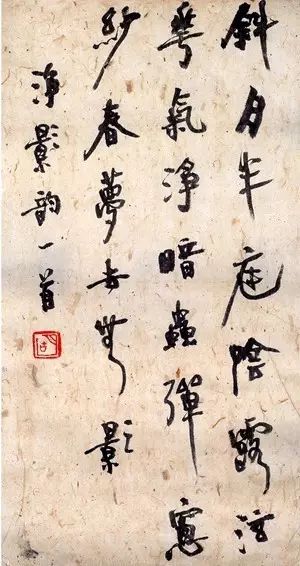 斜月半庭陰露
華氣淨暗蟲彈窓
紗春夢去無影
淨影韵一首